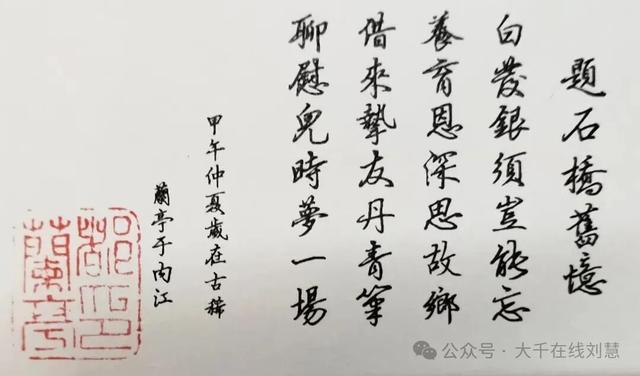 題石橋舊憶
白發銀須豈能忘
養育恩深思故鄉
借來摯友丹青筆
聊慰兒時夢一場
甲午仲夏歲在古稀
蘭亭于內江
公众号·大千在线刘慧